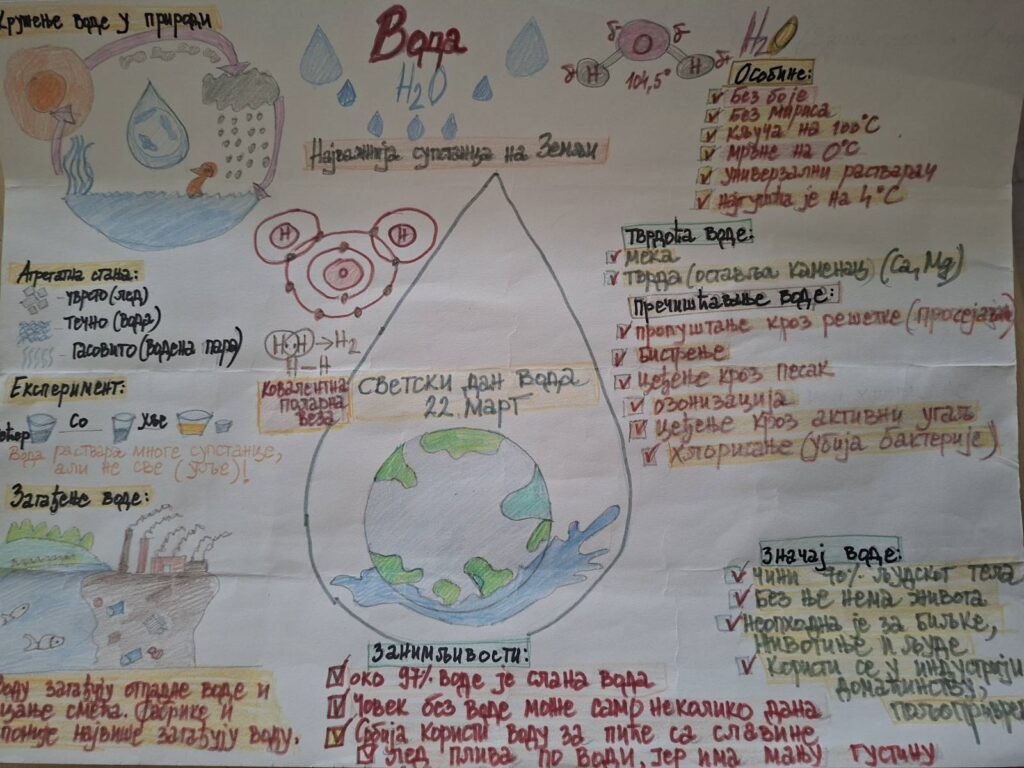 Кружење воде у природи
Вода
H₂O
Најважнија супстанца на Земљи
δ⁻ δ⁻
O
δ+ H H δ+
104,5°
H₂O
Особине:
без боје
без мириса
кључа на 100°C
мрзне на 0°C
универзални растварач
најгушћа је на 4°C
Тврдоћа воде:
мека
тврда (оставља каменац) (Ca, Mg)
Пречишћавање воде:
пропуштање кроз решетке
бистрење
цеђење кроз песак
озонизација
цеђење кроз активни угаљ
хлорисање (убија бактерије)
H H
O
H·H → H₂
H – H
Ковалентна
поларна
веза
Агрегатна стања:
- чврсто (лед)
- течно (вода)
- гасовито (водена пара)
Експеримент:
Со
уље
Вода раствара многе супстанце,
али не све (уље)!
Загађење воде:
воду загађују отпадне воде и
смећа. Фабрике и
највише загађују воду.
Светски дан вода
22. март
Значај воде:
Чини 70% људског тела
Без ње нема живота
Неопходна је за биљке,
животиње и људе
Користи се у индустрији
домаћинству,
Занимљивости:
око 97% воде је слана вода
Човек без воде може само неколико дана
Србија користи воду за пиће са славине
лед плива по води, јер има мању густину